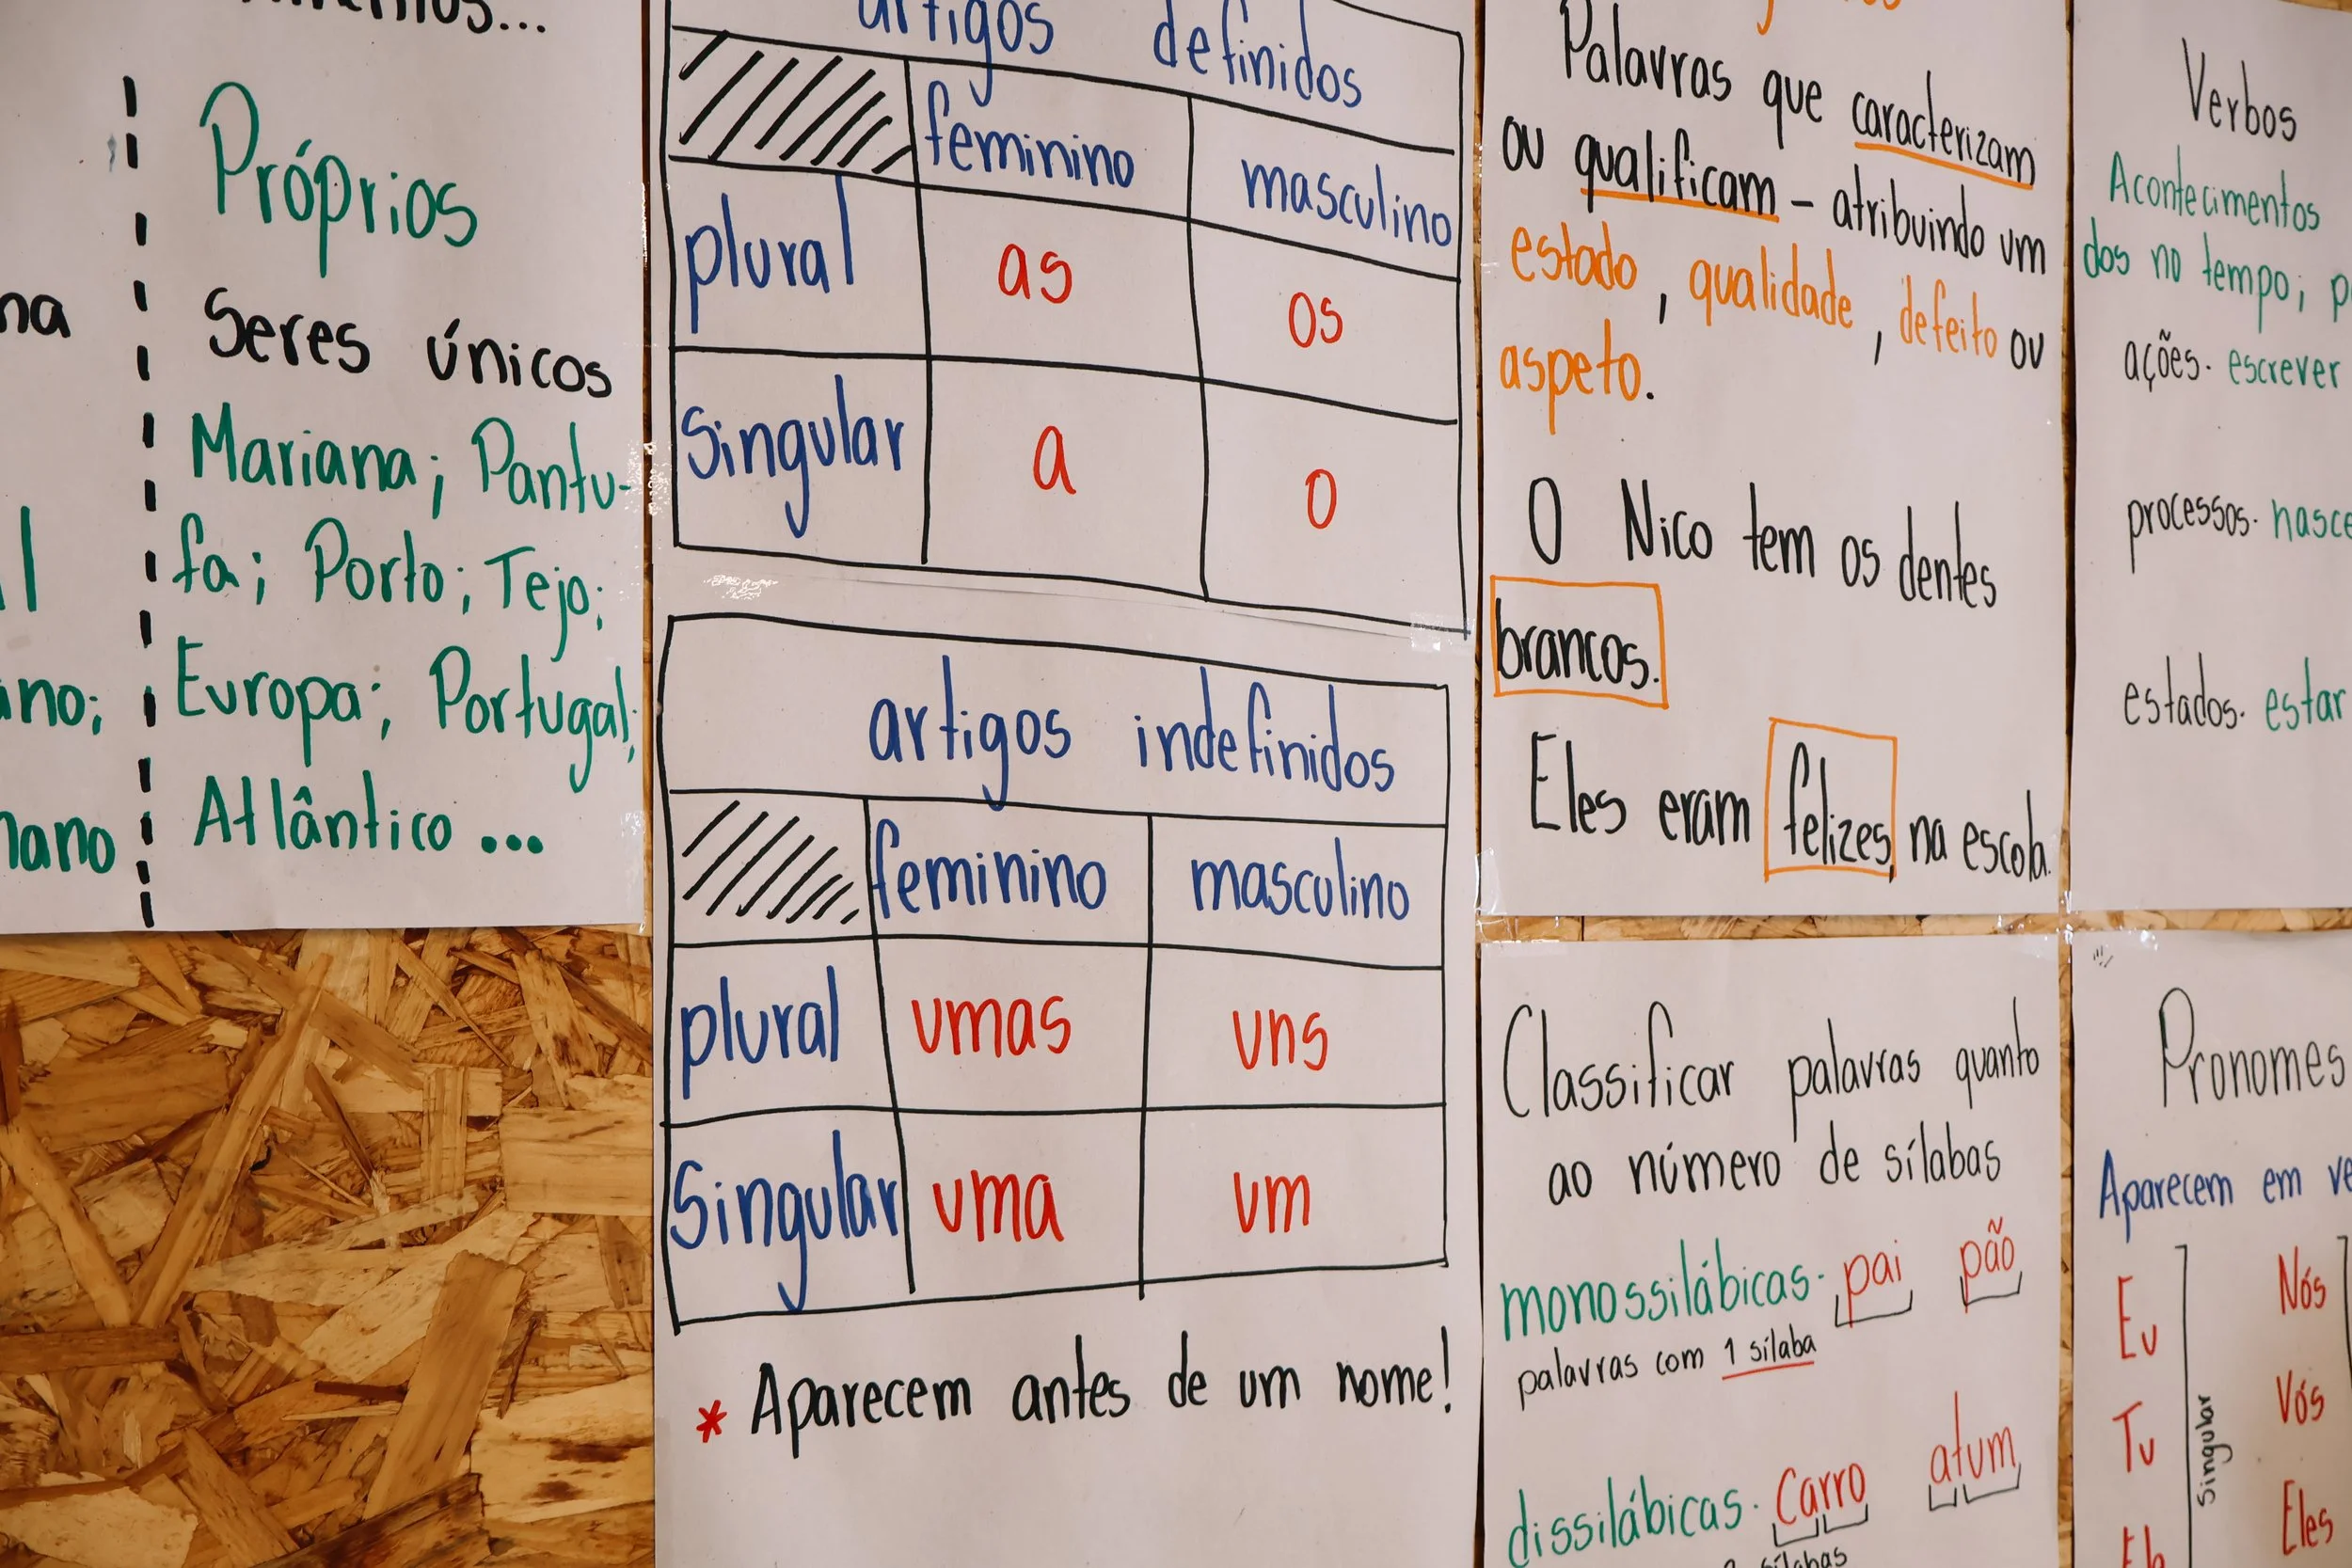 Próprios
Seres únicos
Mariana; Pantu-
fa; Porto; Tejo;
Europa; Portugal;
Atlântico ...
artigos definidos
feminino masculino
plural as os
Singular a o
artigos indefinidos
feminino masculino
plural umas uns
Singular uma um
* Aparecem antes de um nome!
Palavras que caracterizam
ou qualificam - atribuindo um
estado, qualidade, defeito ou
aspeto.
O Nico tem os dentes
brancos.
Eles eram felizes, na escola.
Classificar palavras quanto
ao número de sílabas
monossilábicas. pai pão
palavras com 1 sílaba
dissilábicas. Carro atum
sílabas
Verbos
Acontecimentos
dos no tempo; p
ações. escrever
processos. nasce
estados. estar
Pronomes
Aparecem em ve
Eu Nós
Tu Vós
Singular
Eles